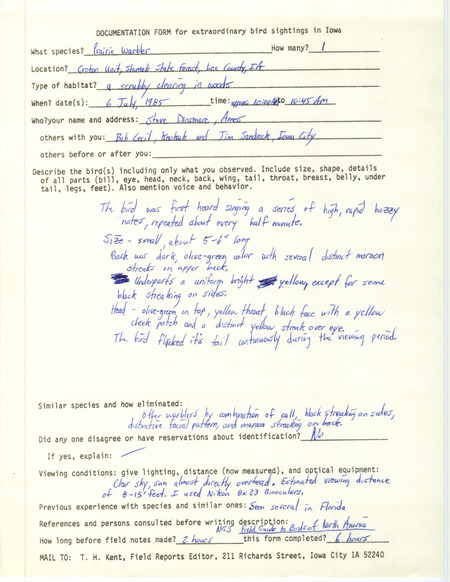 DOCUMENTATION FORM for extraordinary bird sightings in Iowa
What species? Prairie Warbler How many? 1
Location? Croton Unit, Shimek State Forest, Lee County, IA
Type of habitat? a scrubby clearing in woods
When? date(s): 6 July, 1985 time: approx 10:30AM to 10:45 AM
Who? your name and address: Steve Dinsmore, Ames
others with you: Bob Cecil, Keokuk and Jim Sandrock, Iowa City
others before or after you:
Describe the bird(s) including only what you observed. Include size, shape, details
of all parts (bill, eye, head, neck, back, wing, tail, throat, breast, belly, under
tail, legs, feet). Also mention voice and behavior.
The bird was first heard singing a series of high, rapid buzzy
notes, repeated about every half minute.
Size - small, about 5-6" long
Back was dark, olive-green color with several distinct maroon
streaks on upper back.
Underparts a uniform bright yellow, except for some
black streaking on sides.
Head - olive-green on top, yellow throat, black face with a yellow
cheek patch and a distinct yellow streak over eye.
The bird flicked it's tail continuously during the viewing period.
Similar species and how eliminated:
Other warblers by combination of call, black streaking on sides,
distinctive facial pattern, and maroon streaking on back.
Did any one disagree or have reservations about identification? No
If yes, explain: —
Viewing conditions: give lighting, distance (how measured), and optical equipment:
Clear sky, sun almost directly overhead. Estimated viewing distance
of 8-15 feet. I used Nikon 8x23 Binoculars.
Previous experience with species and similar ones: Seen several in Florida
References and persons consulted before writing description:
NGS Field Guide to Birds of North America
How long before field notes made? 2 hours this form completed? 6 hours
MAIL TO: T. H. Kent, Field Reports Editor, 211 Richards Street, Iowa City IA 52240